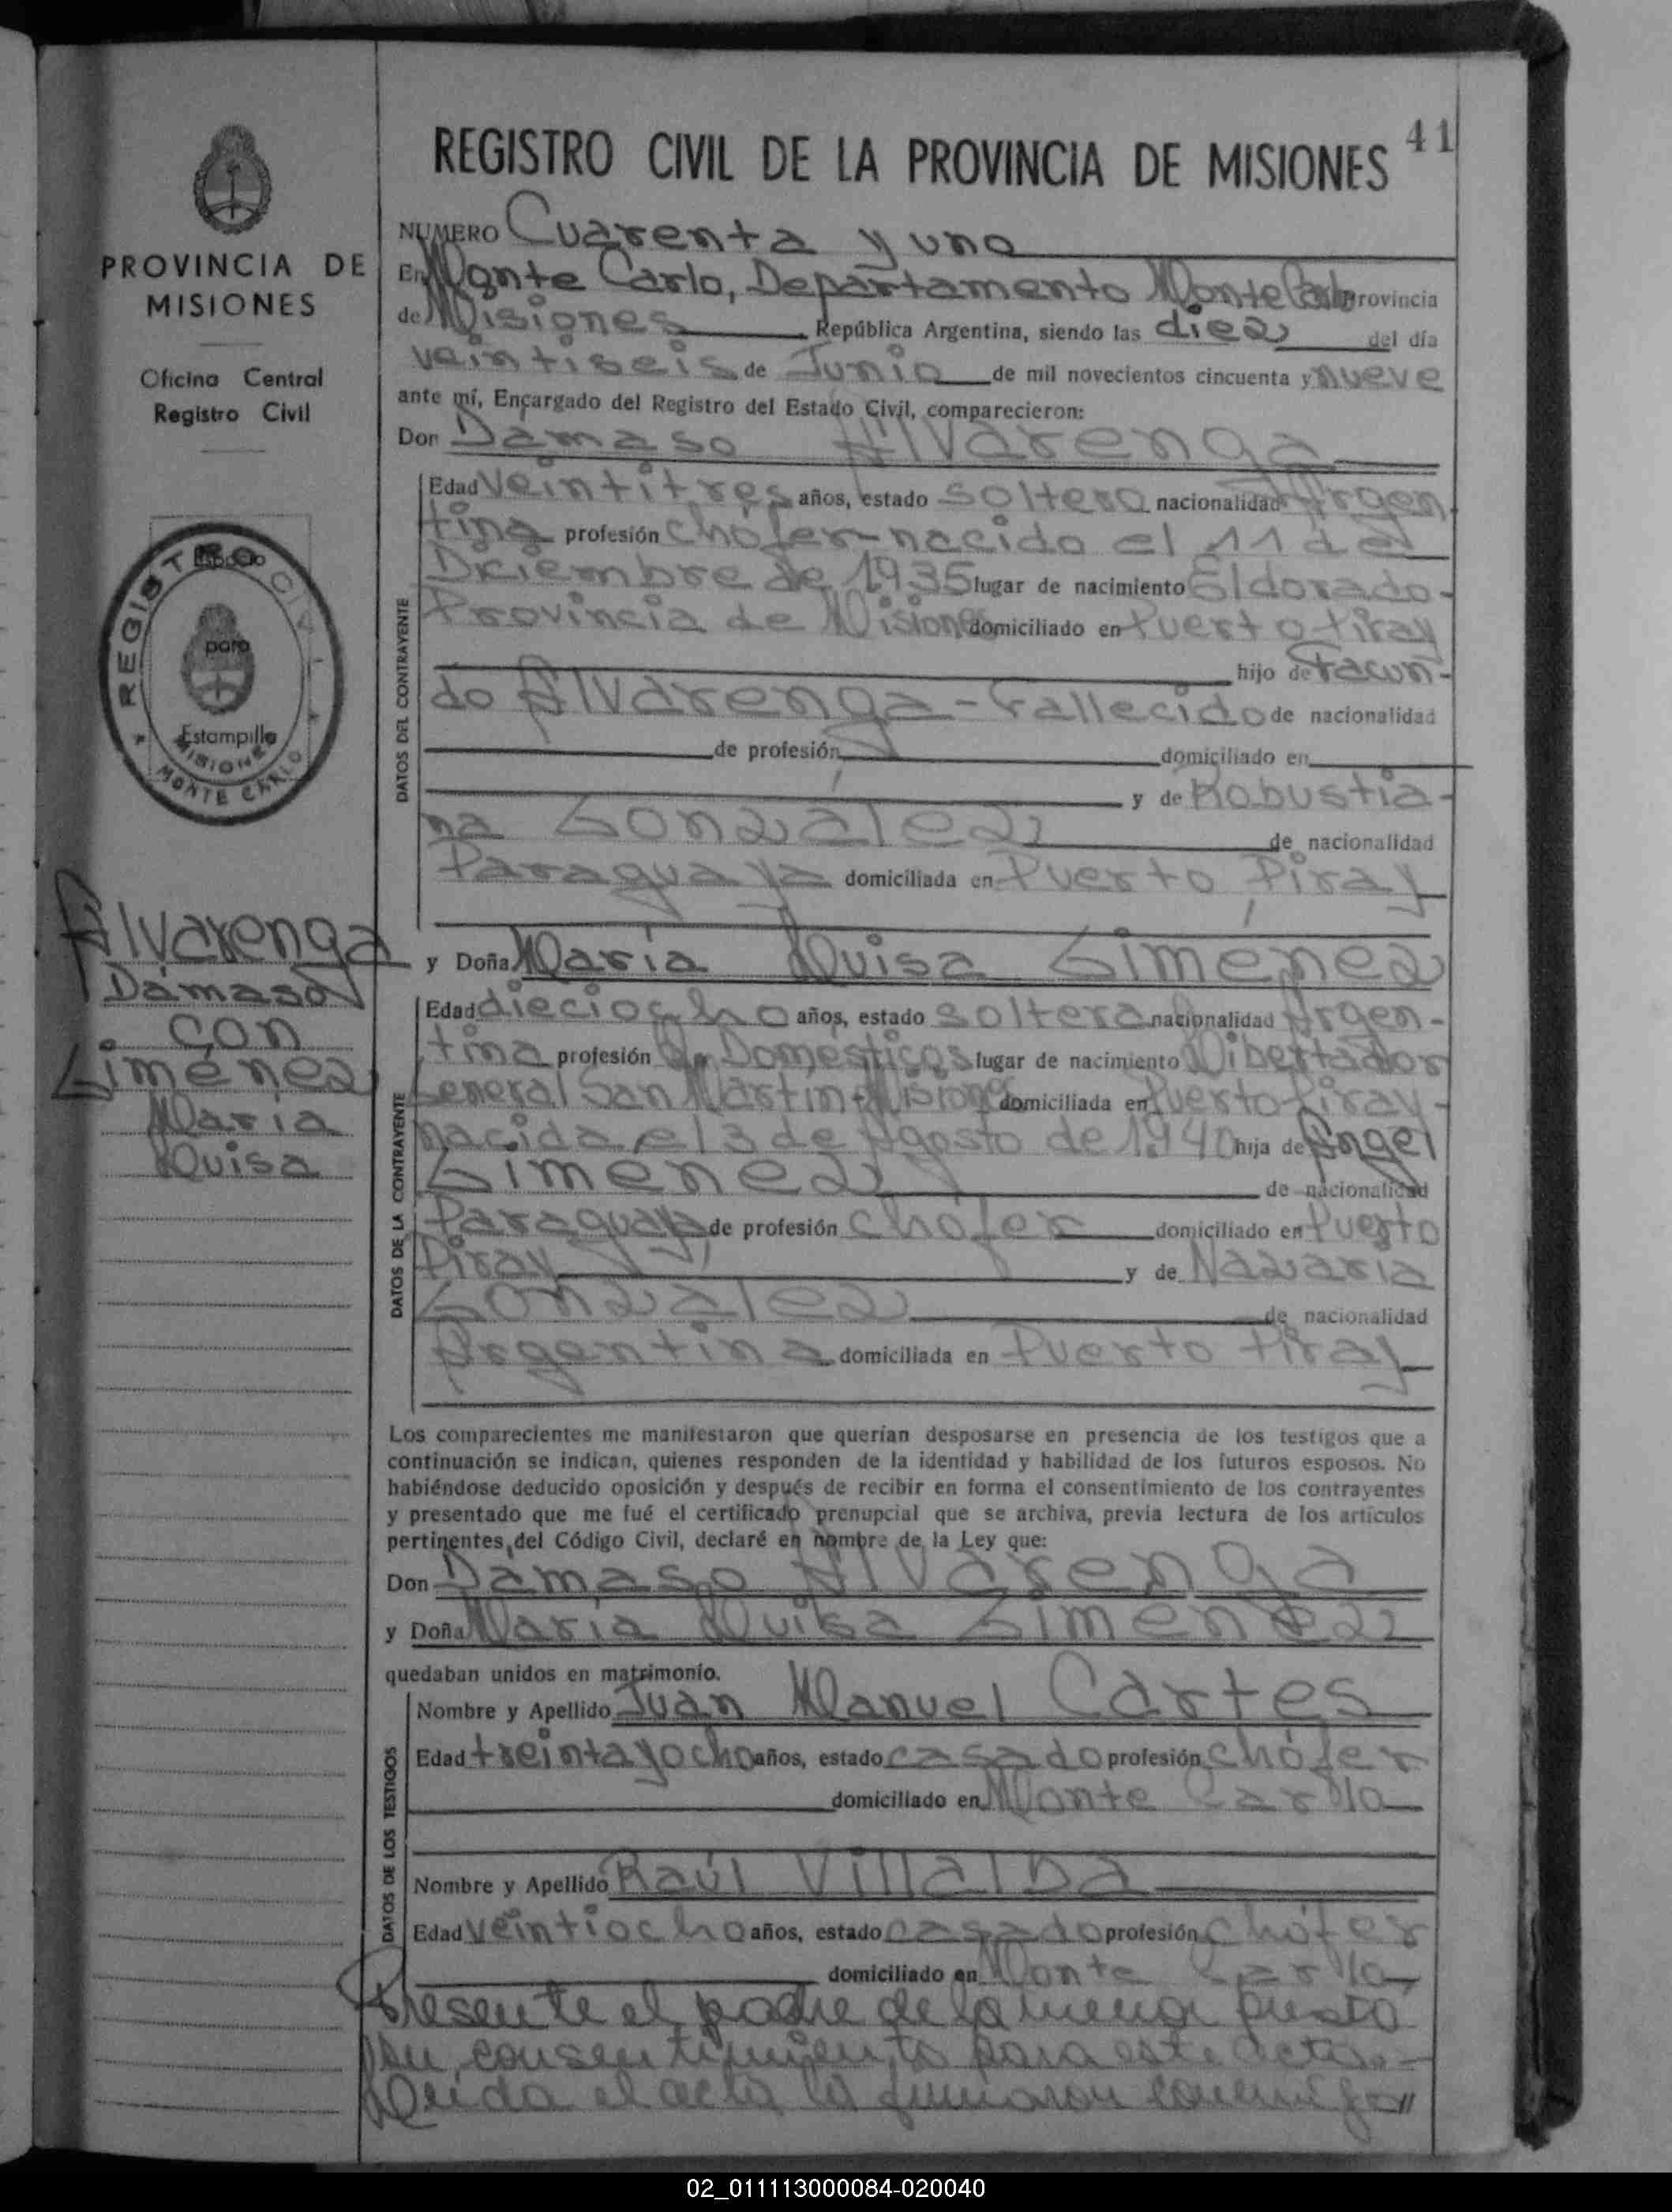 41
REGISTRO CIVIL DE LA PROVINCIA DE MISIONES
PROVINCIA DE
MISIONES
Oficina Central
Registro Civil
REGISTRO CIVIL
Espacio
para
Estampilla
MISIONES
MONTE CARLO
Alvarenga
Dámaso
con
Giménez
María
Luisa
NUMERO Cuarenta y uno
En Monte Carlo, Departamento Monte Carlo Provincia
de Misiones República Argentina, siendo las diez del día
veintiseis de Junio de mil novecientos cincuenta y nueve
ante mí, Encargado del Registro del Estado Civil, comparecieron:
Don Dámaso Alvarenga
DATOS DEL CONTRAYENTE
Edad veintitres años, estado soltero nacionalidad Argen
tina profesión chófer-nacido el 11 de
Diciembre de 1935 lugar de nacimiento Eldorado-
Provincia de Misiones domiciliado en Puerto Piray
hijo de Facun-
do Alvarenga - Fallecido de nacionalidad
de profesión domiciliado en
y de Robustia-
na González de nacionalidad
Paraguaya domiciliada en Puerto Piray
y Doña María Luisa Giménez
DATOS DE LA CONTRAYENTE
Edad dieciocho años, estado soltera nacionalidad Argen-
tina profesión Q. Domésticos lugar de nacimiento Libertador
General San Martín-Misiones domiciliada en Puerto Piray-
nacida el 3 de Agosto de 1940 hija de Angel
Giménez de nacionalidad
Paraguaya de profesión chófer domiciliado en Puerto
Piray y de Nazaria
González de nacionalidad
Argentina domiciliada en Puerto Piray
Los comparecientes me manifestaron que querían desposarse en presencia de los testigos que a
continuación se indican, quienes responden de la identidad y habilidad de los futuros esposos. No
habiéndose deducido oposición y después de recibir en forma el consentimiento de los contrayentes
y presentado que me fué el certificado prenupcial que se archiva, previa lectura de los artículos
pertinentes del Código Civil, declaré en nombre de la Ley que:
Don Dámaso Alvarenga
y Doña María Luisa Giménez
quedaban unidos en matrimonio.
DATOS DE LOS TESTIGOS
Nombre y Apellido Juan Manuel Cartes
Edad treinta y ocho años, estado casado profesión chófer
domiciliado en Monte Carlo
Nombre y Apellido Raúl Villalba
Edad veintiocho años, estado casado profesión chófer
domiciliado en Monte Carlo,
Presente el padre de la menor presta
su consentimiento para este acto.-
Leida el acta la firmaron conmigo
02_011113000084-020040